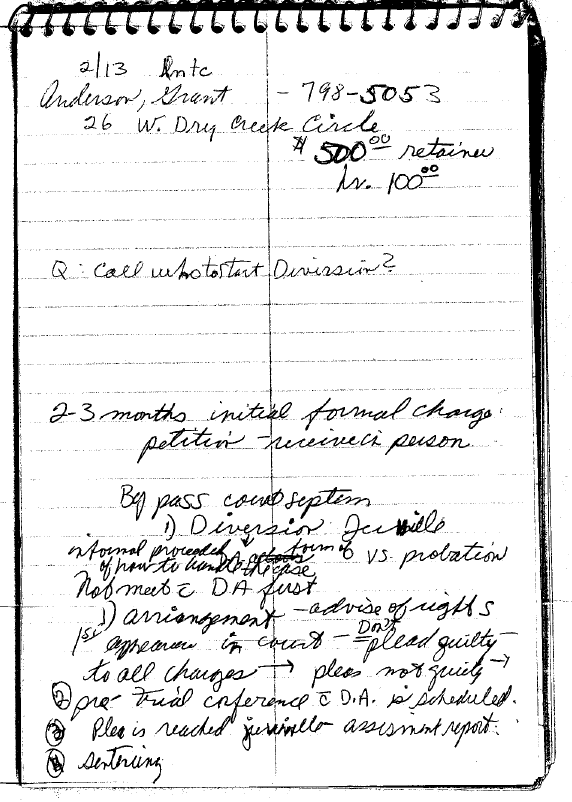 2/13 Intc
Anderson, Grant - 798-5053
26 W. Dry Creek Circle
$ 500.00 retainer
hr. 100.00
Q: Call who to start Diversion?
2-3 months initial formal charge
petition - receive in person
By pass court septem
1) Diversion Juvenile
informal proceeded
of how to handle the case
DA formal vs probation
Not meet c̄ DA first
1) arriangement - advise of rights
1st appearance in court - Don't plead guilty
to all charges → pleas not guilty →
② pre-trial conference c̄ D.A. is scheduled.
③ Plea is reached juvinille assisment report.
④ sentencing